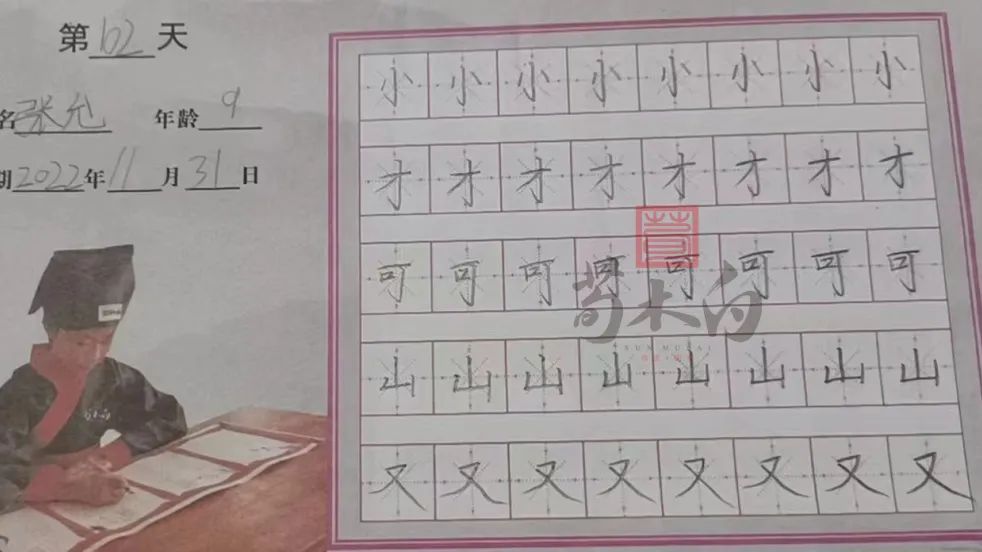 第62天
名张允 年龄9
期2022年11月31日
小小小小小小小小
才才才才才才才才
可可可可可可可可
山山山山山山山山
又又又又又又又又
荀木白
XUN MU BAI